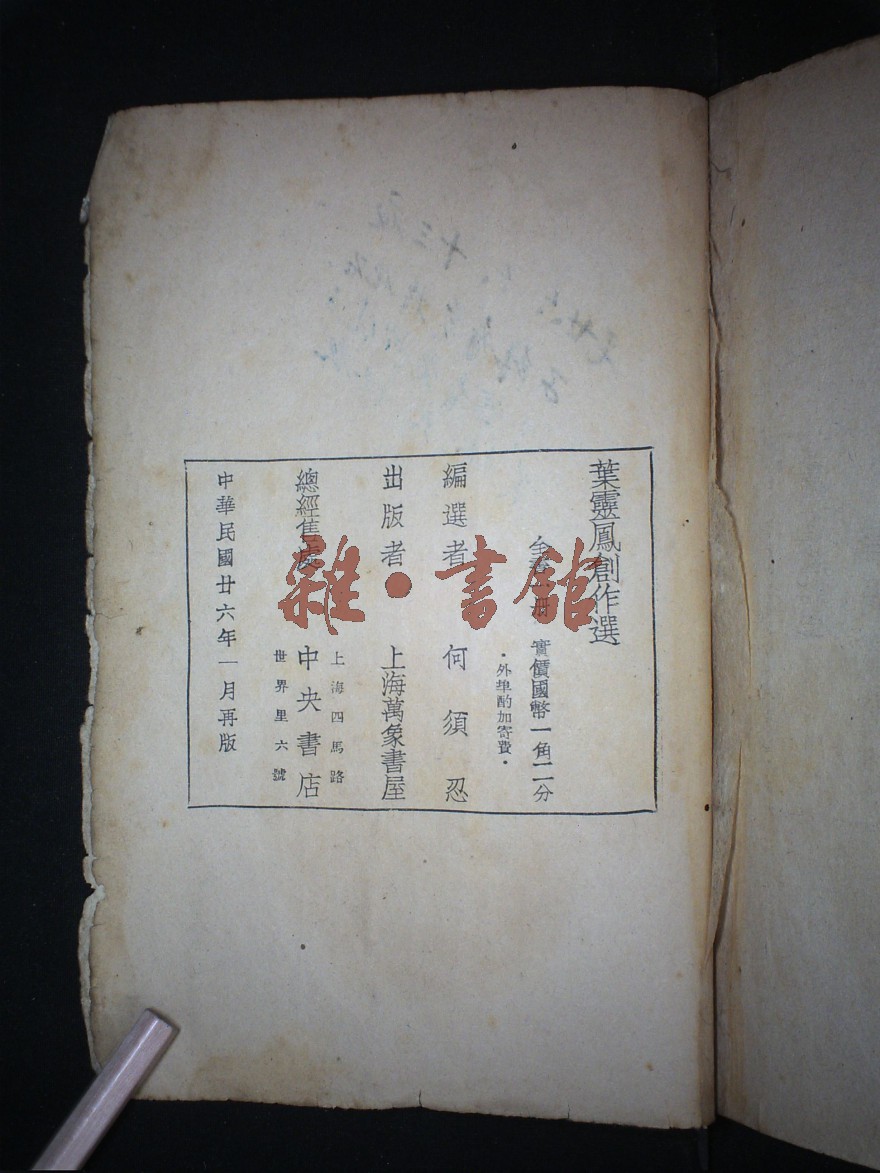 葉靈鳳創作選
全
冊
實價國幣一角二分
·外埠酌加寄費·
編選者 何須忍
出版者 上海萬象書屋
上海四馬路
總經售處 中央書店
世界里六號
中華民國廿六年一月再版
雜·書館